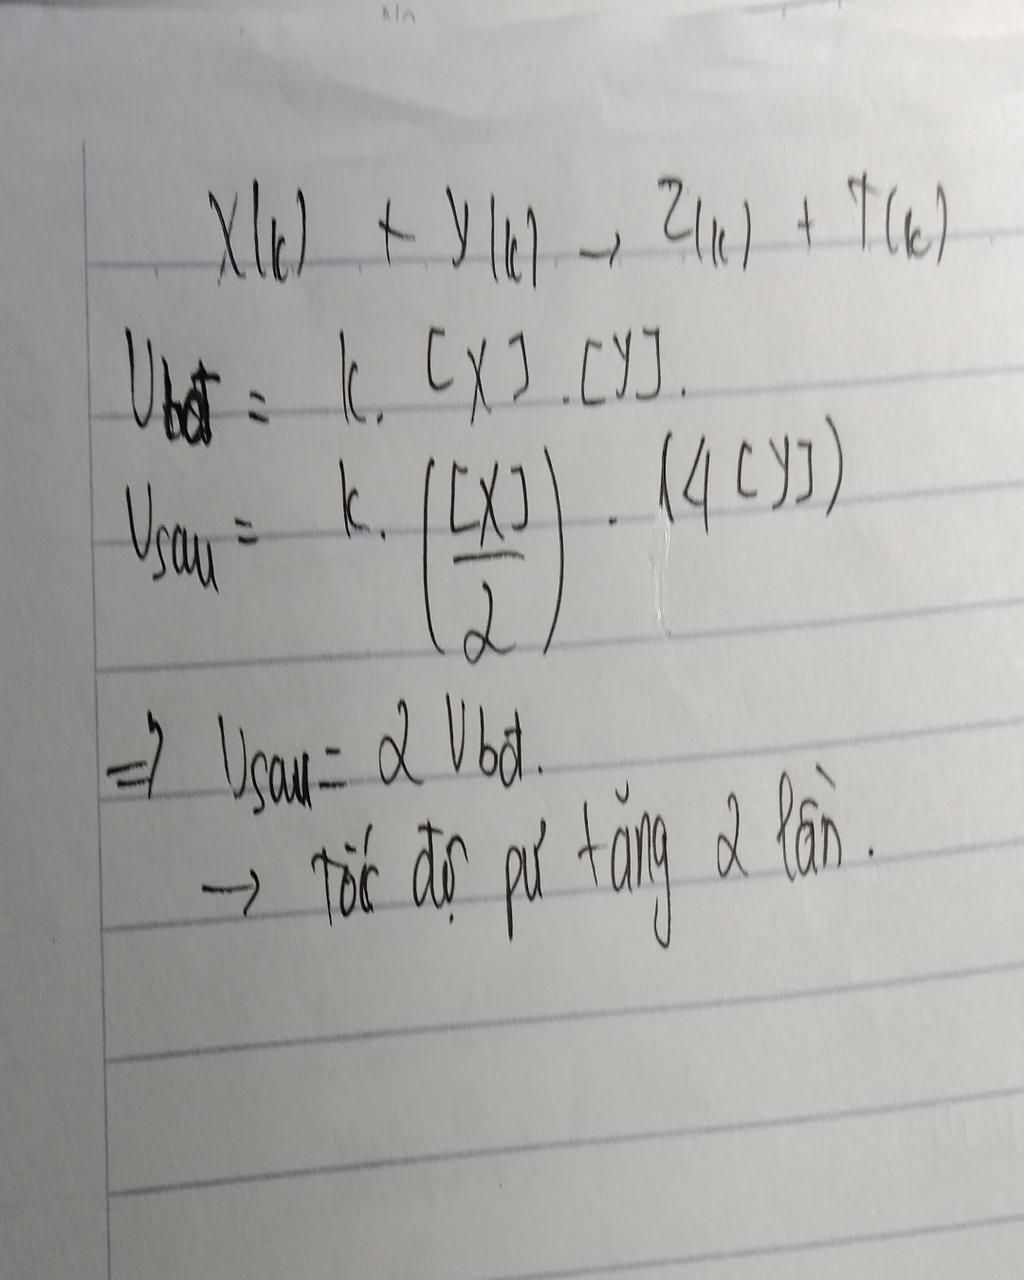 X(k) + Y(k) → Z(k) + T(k)
Vbđ = k. [X] . [Y].
Vsau = k. ([X]/2) . (4[Y])
=> Vsau = 2 Vbđ.
→ Tốc độ pư tăng 2 lần.